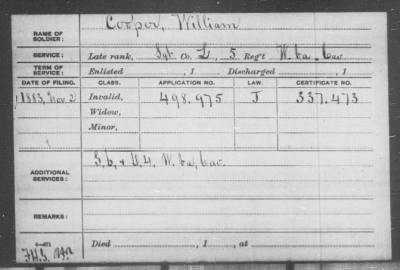 Cooper, William
NAME OF SOLDIER:
SERVICE: Late rank, Sgt Co. L, 5 Reg't W. Va. Cav
TERM OF SERVICE: Enlisted , 1 Discharged , 1
DATE OF FILING. CLASS. APPLICATION NO. LAW. CERTIFICATE NO.
1883, Nov. 2 Invalid, 498.975 J 337.473
Widow,
Minor,
ADDITIONAL SERVICES: G. 6, & W. Va, Cav.
REMARKS:
Died , 1 , at